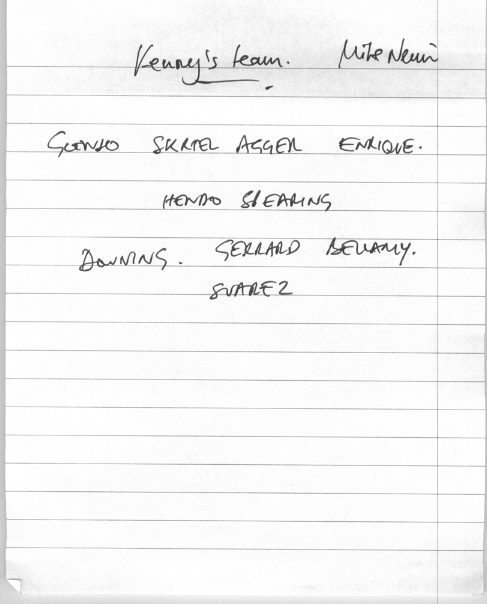 Kenny's team. Mike Nevin
GLENJO SKRTEL AGGER ENRIQUE.
HENDO SPEARING
DOWNING. GERRARD BELLAMY.
SUAREZ